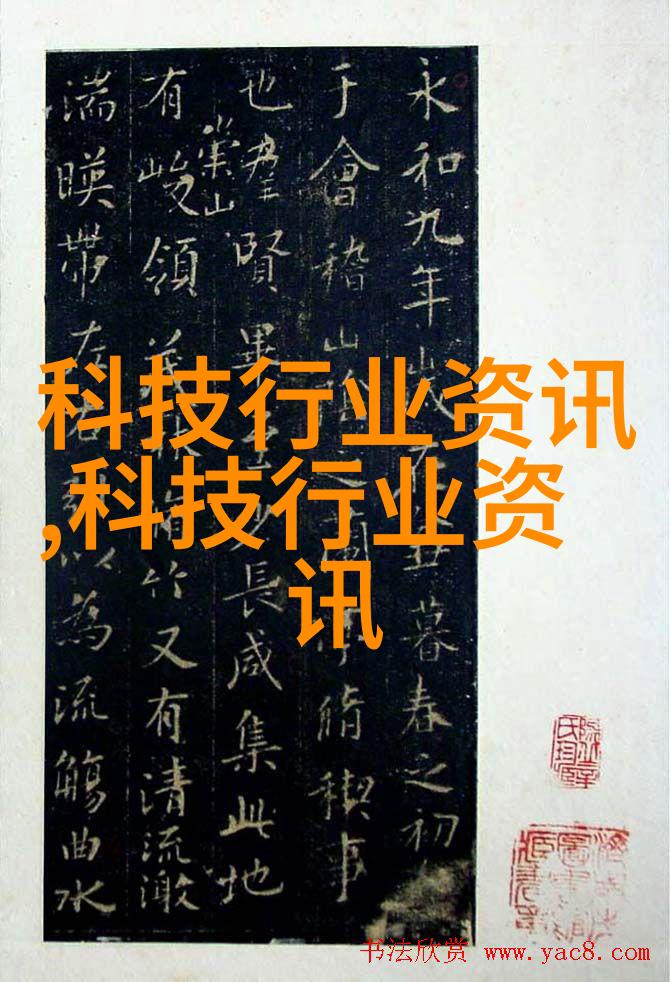 永和九年歲在丑暮春之初
于會稽山陰之蘭亭脩稧事
也羣賢畢至少長咸集此地
有崇山峻領茂林脩竹又有清流激
湍暎帶左右引以為流觴曲水
科技行业资讯
,科技行业资
讯
书法欣赏 www.yac8.com